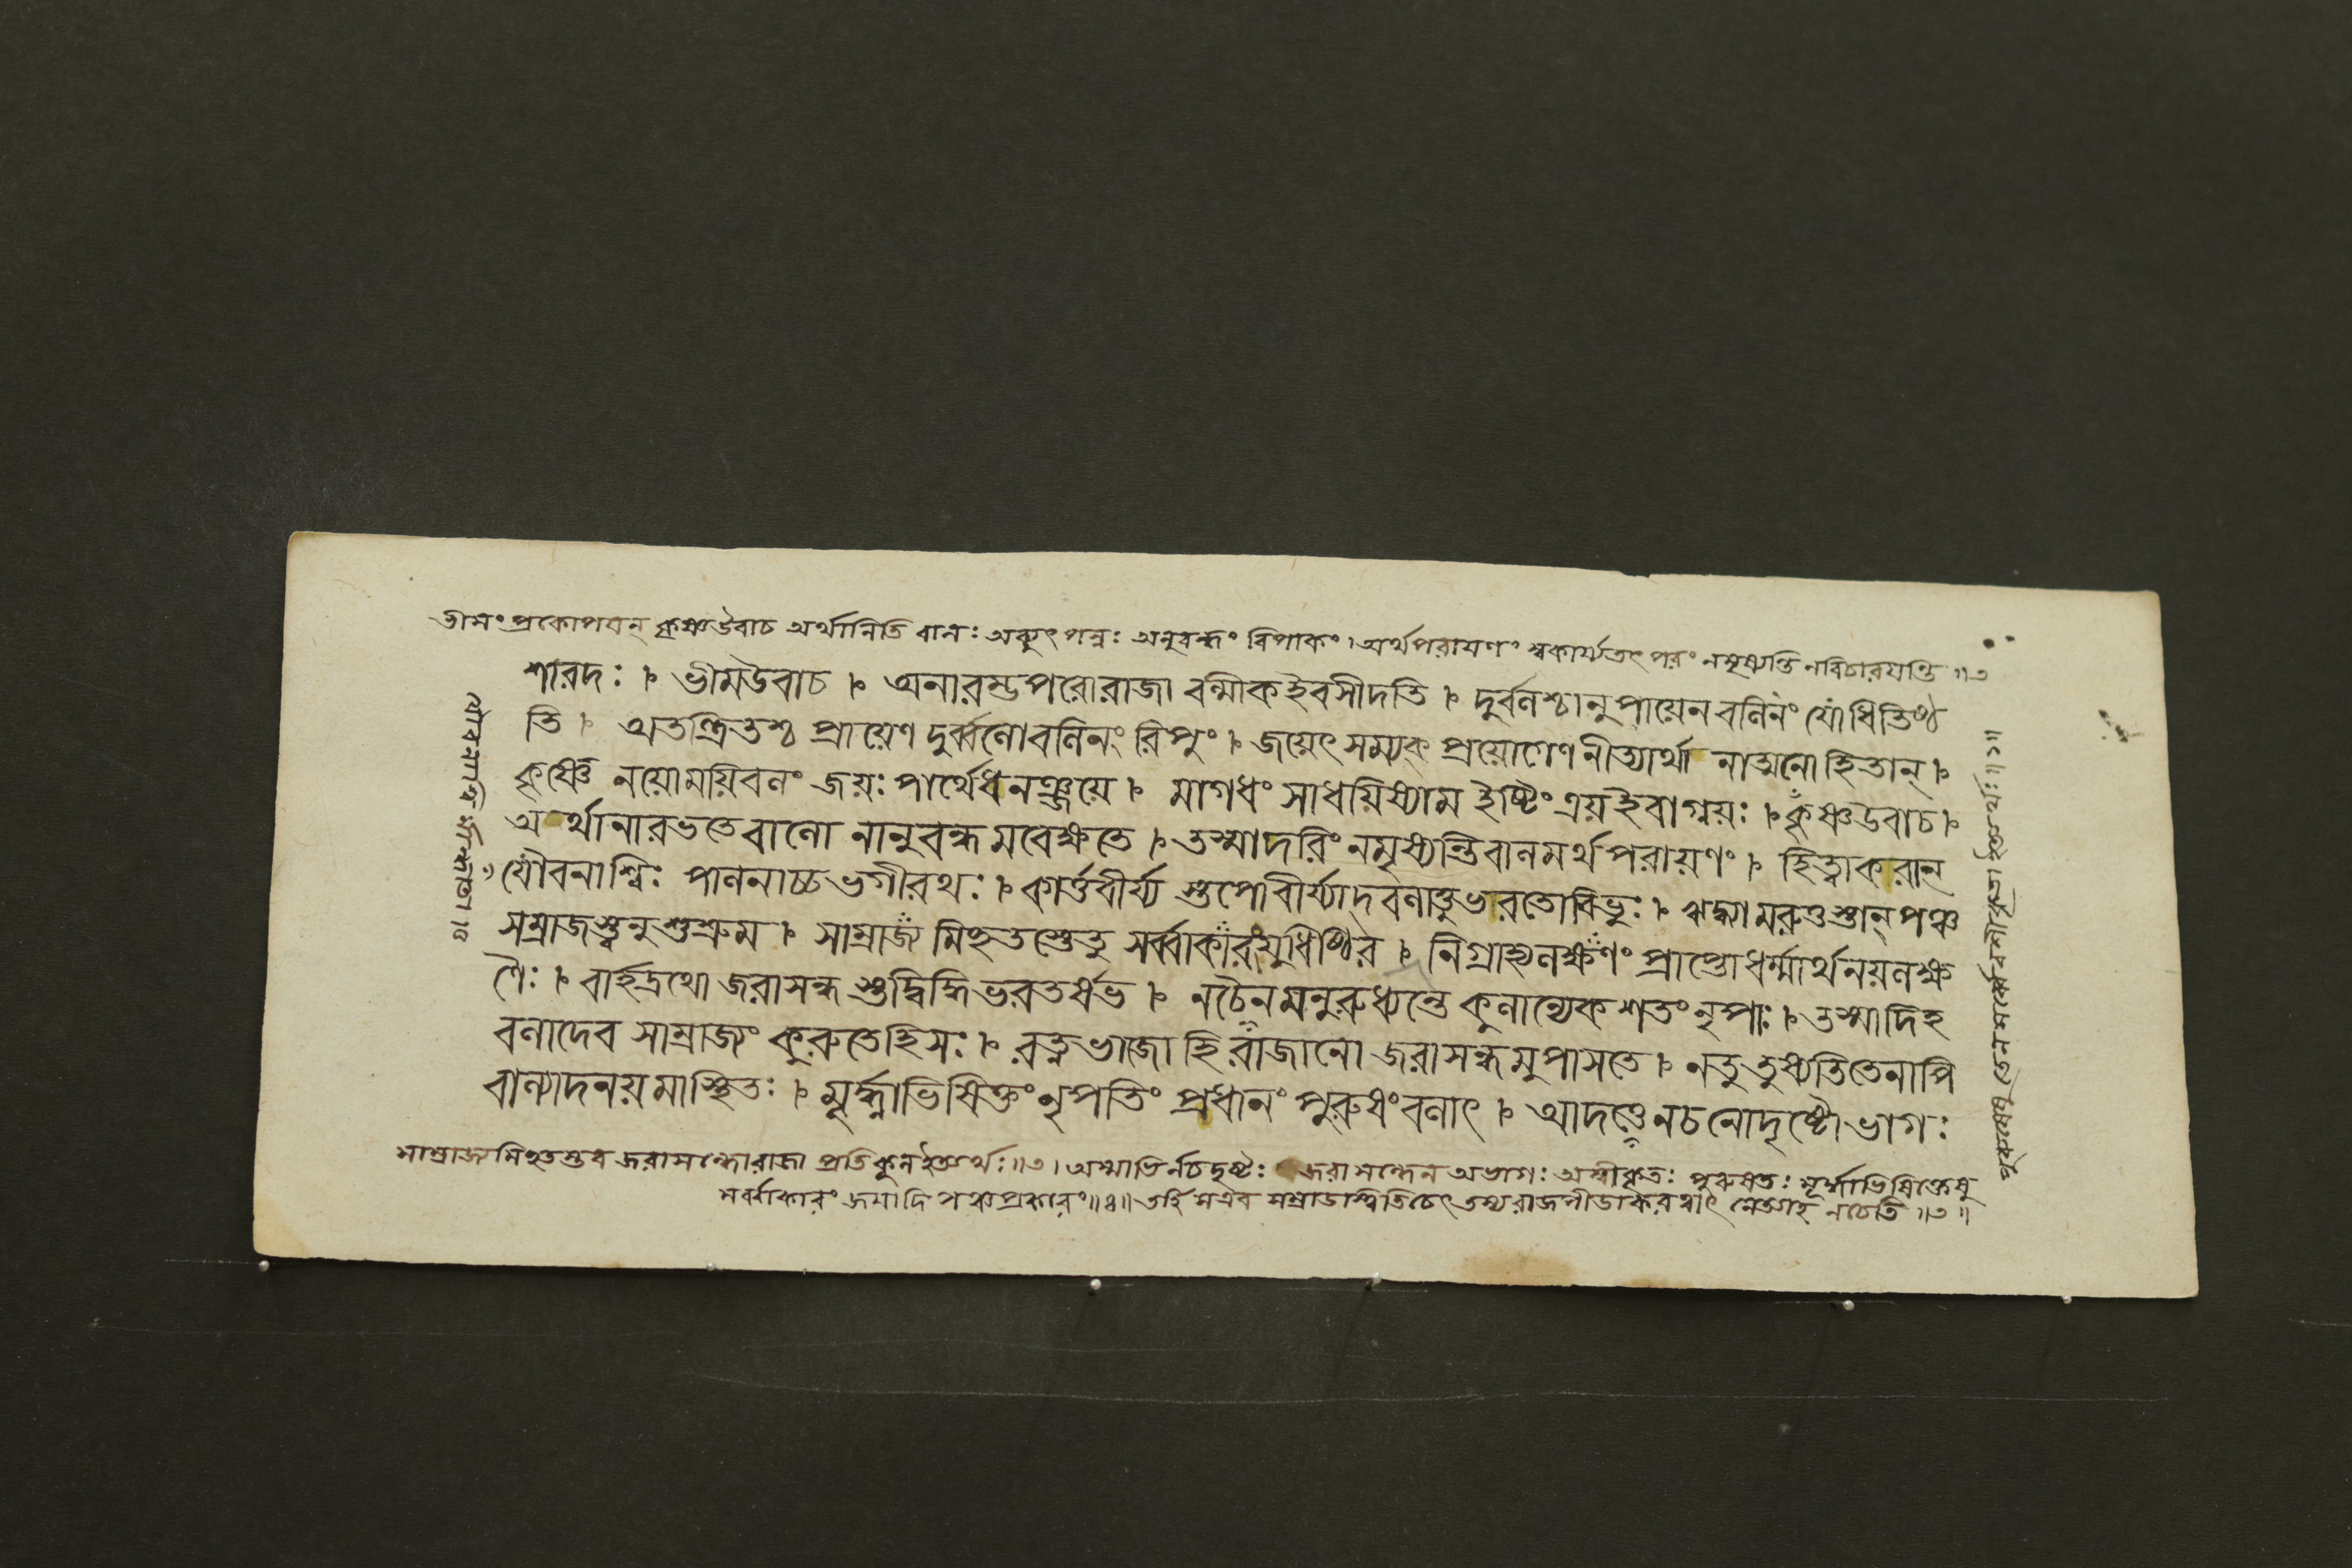 ভীমং প্রকোপযন্ কৃষ্ণউবাচ অর্থানিতি বালঃ অব্যুৎপন্নঃ অনুবন্ধং বিপাকং। অর্থপরায়ণং স্বকার্য্যতৎপরং নমৃষ্যন্তি নবিচারযন্তি ॥৩
শারদঃ । ভীমউবাচ । অনারম্ভপরোরাজা বল্মীকইবসীদতি । দুর্বলশ্চানুপায়েন বলিনং যোধিতিষ্ঠ
তি । অতন্দ্রিতশ্চ প্রায়েণ দুর্ব্বলোবলিনং রিপুং । জয়েৎ সম্যক্ প্রয়োগেণ নীত্যার্থা নাত্মনোহিতান্ ।
কৃষ্ণে নয়োময়িবলং জয়ঃ পার্থেধনঞ্জয়ে । মাগধং সাধয়িষ্যাম ইষ্টিং ত্রয়ইবাগ্নয়ঃ । কৃষ্ণউবাচ ।
অর্থানারভতেবালো নানুবন্ধমবেক্ষতে । তস্মাদরিং নমৃষ্যন্তিবালমর্থপরায়ণং । হিত্বাকরান্
যৌবনাশ্বিঃ পালনাচ্চভগীরথঃ । কার্ত্তবীর্য্য স্তপোবীর্য্যাদ্বলাত্তুভরতোবিভুঃ । ঋদ্ধ্যামরুত্তস্তান্ পঞ্চ
সম্রাজস্ত্বনুশুশ্রুম । সাম্রাজ্যমিহতস্তেতু সর্ব্বাকারংযুধিষ্ঠির । নিগ্রাহ্যলক্ষণং প্রাপ্তোধর্ম্মার্থনয়লক্ষ
ণৈঃ । বার্হদ্রথো জরাসন্ধ স্তদ্বিদ্ধিভরতর্ষভ । নচৈনমনুরুধ্যন্তে কুলান্যেকশতং নৃপাঃ । তস্মাদিহ
বলাদেব সাম্রাজ্যং কুরুতেহিসঃ । রত্নভাজো হিরাজানো জরাসন্ধমুপাসতে । নতুতুষ্যতিতেনাপি
বাল্যাদনয়মাস্থিতঃ । মূর্দ্ধাভিষিক্তংনৃপতিং প্রধানং পুরুষংবলাৎ । আদত্তেনচনোদৃষ্টোভাগঃ
সাম্রাজ্যমিহতস্তব জরাসন্ধোরাজা প্রতিকূলইত্যর্থঃ ॥৩। অস্মাভির্নচদৃষ্টঃ জরাসন্ধেন অভাগঃ অস্বীকৃতঃ পুরুষতঃ মূর্দ্ধাভিষিক্তেষু
সর্ব্বাকারং জয়াদি পঞ্চপ্রকারং ॥৪॥ তর্হি সএব সম্রাডাস্থিতিচেৎ